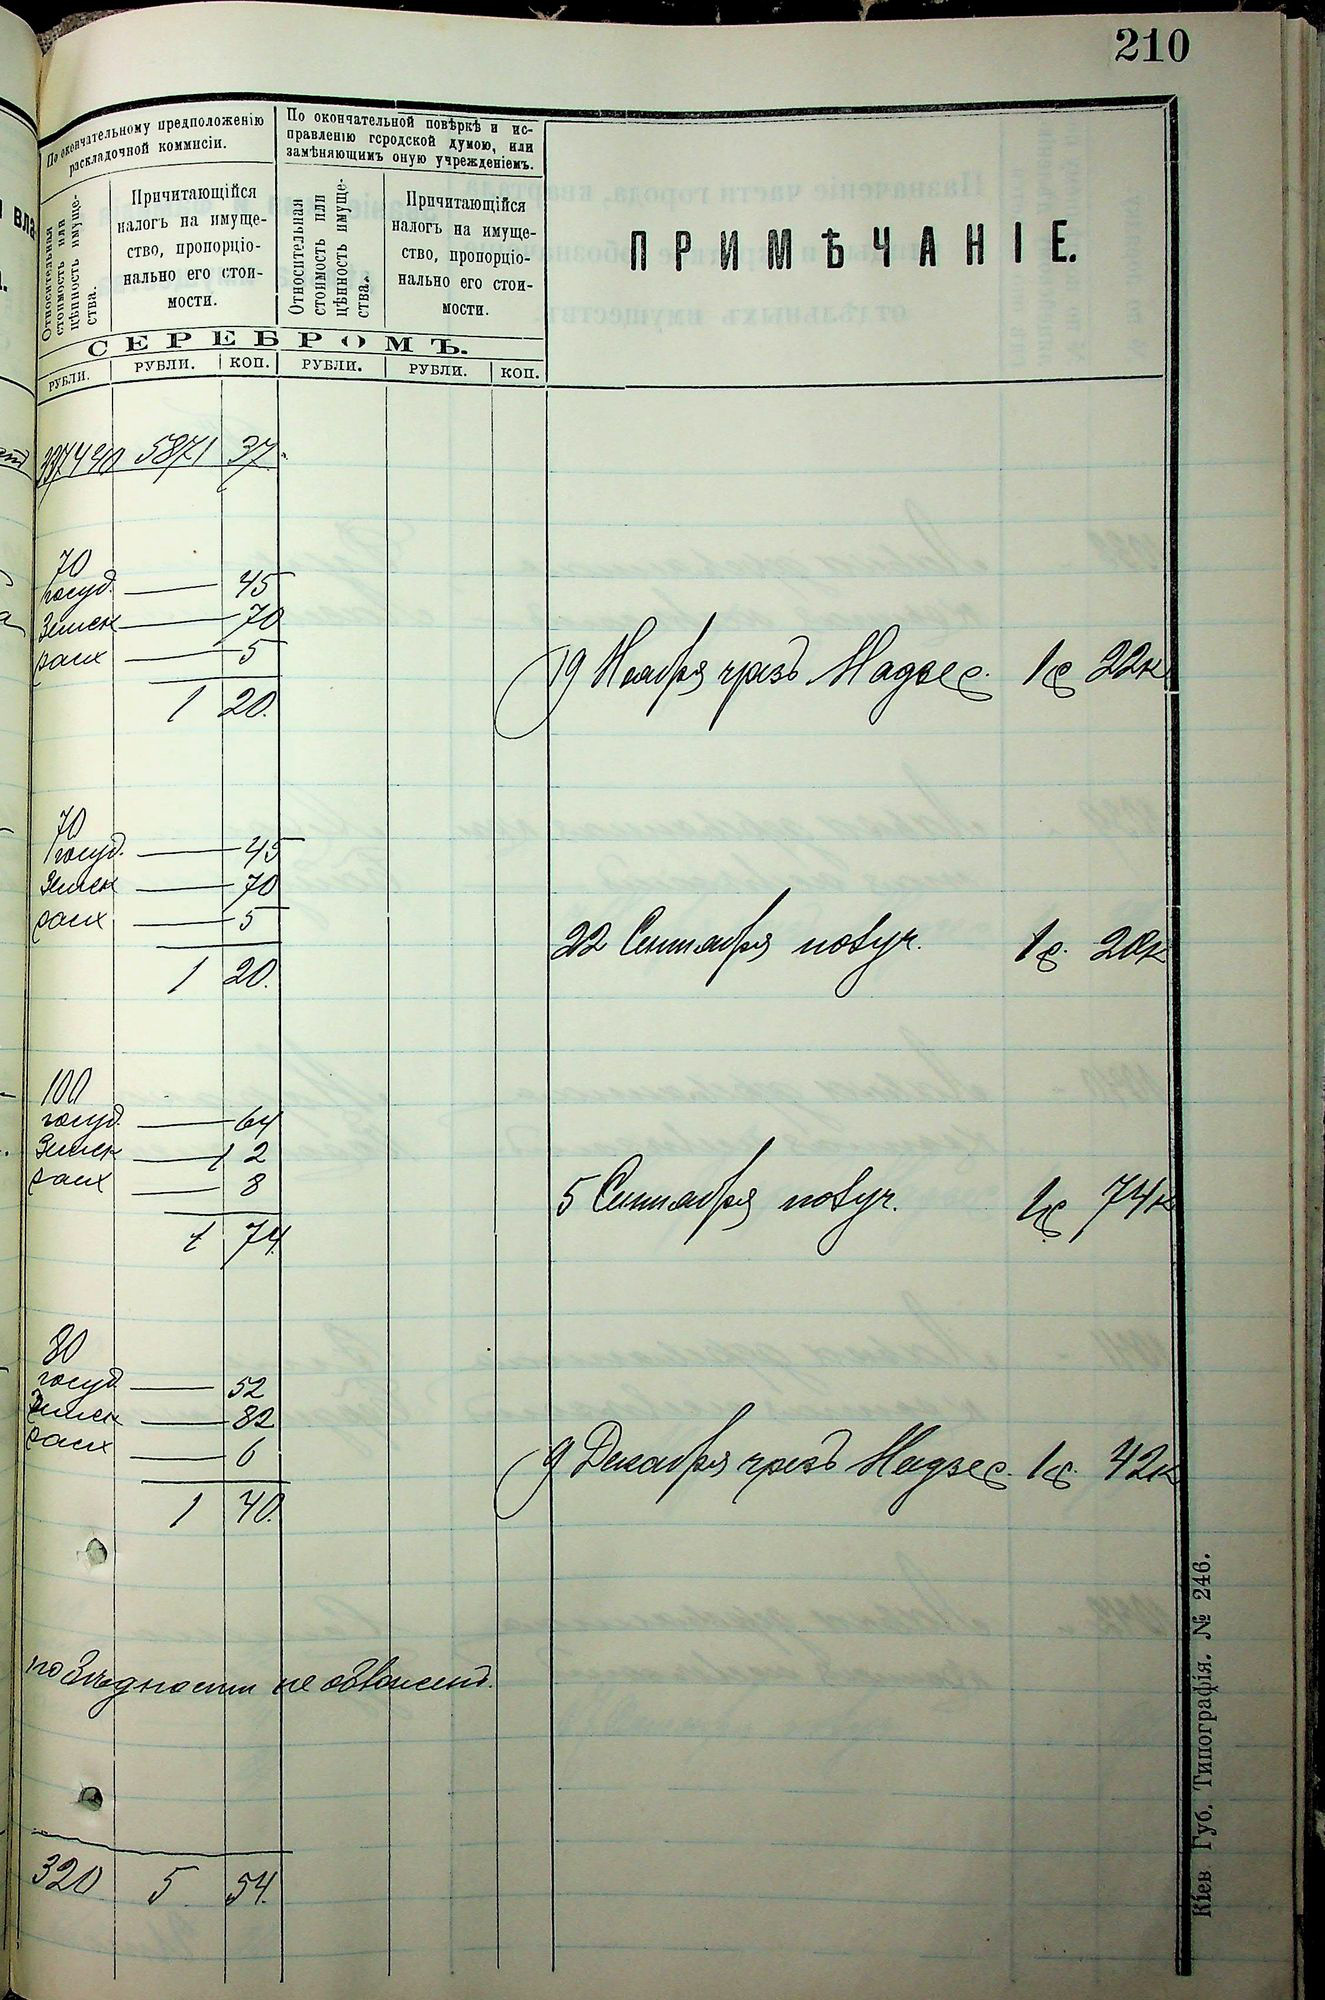 210
По окончательному предположенію
раскладочной коммисіи.
По окончательной повѣркѣ и ис-
правленію городской думою, или
замѣняющимъ оную учрежденіемъ.
Относительная
стоимость или
цѣнность имуще-
ства.
Причитающійся
налогъ на имуще-
ство, пропорціо-
нально его стои-
мости.
Относительная
стоимость или
цѣнность имуще-
ства.
Причитающійся
налогъ на имуще-
ство, пропорціо-
нально его стои-
мости.
ПРИМѢЧАНІЕ.
СЕРЕБРОМЪ.
РУБЛИ. РУБЛИ. КОП. РУБЛИ. РУБЛИ. КОП.
337440 5871 37.
70
госуд. — 45
Земск — 70
— 5
1 20.
19 Ноября чрезъ Надзер. 1р 22к
70
госуд. — 45
Земск — 70
— 5
1 20.
22 Сентября 1р. 20к
100
госуд. — 64
Земск — 1 2
— 8
1 74.
5 Сентября 1р 74к
80
госуд — 52
Земск — 82
— 6
1 40.
9 Декабря чрезъ Надзер. 1р. 42к
по бѣдности не обложенъ.
320 5 54.
Кіев. Губ. Типографія. № 246.